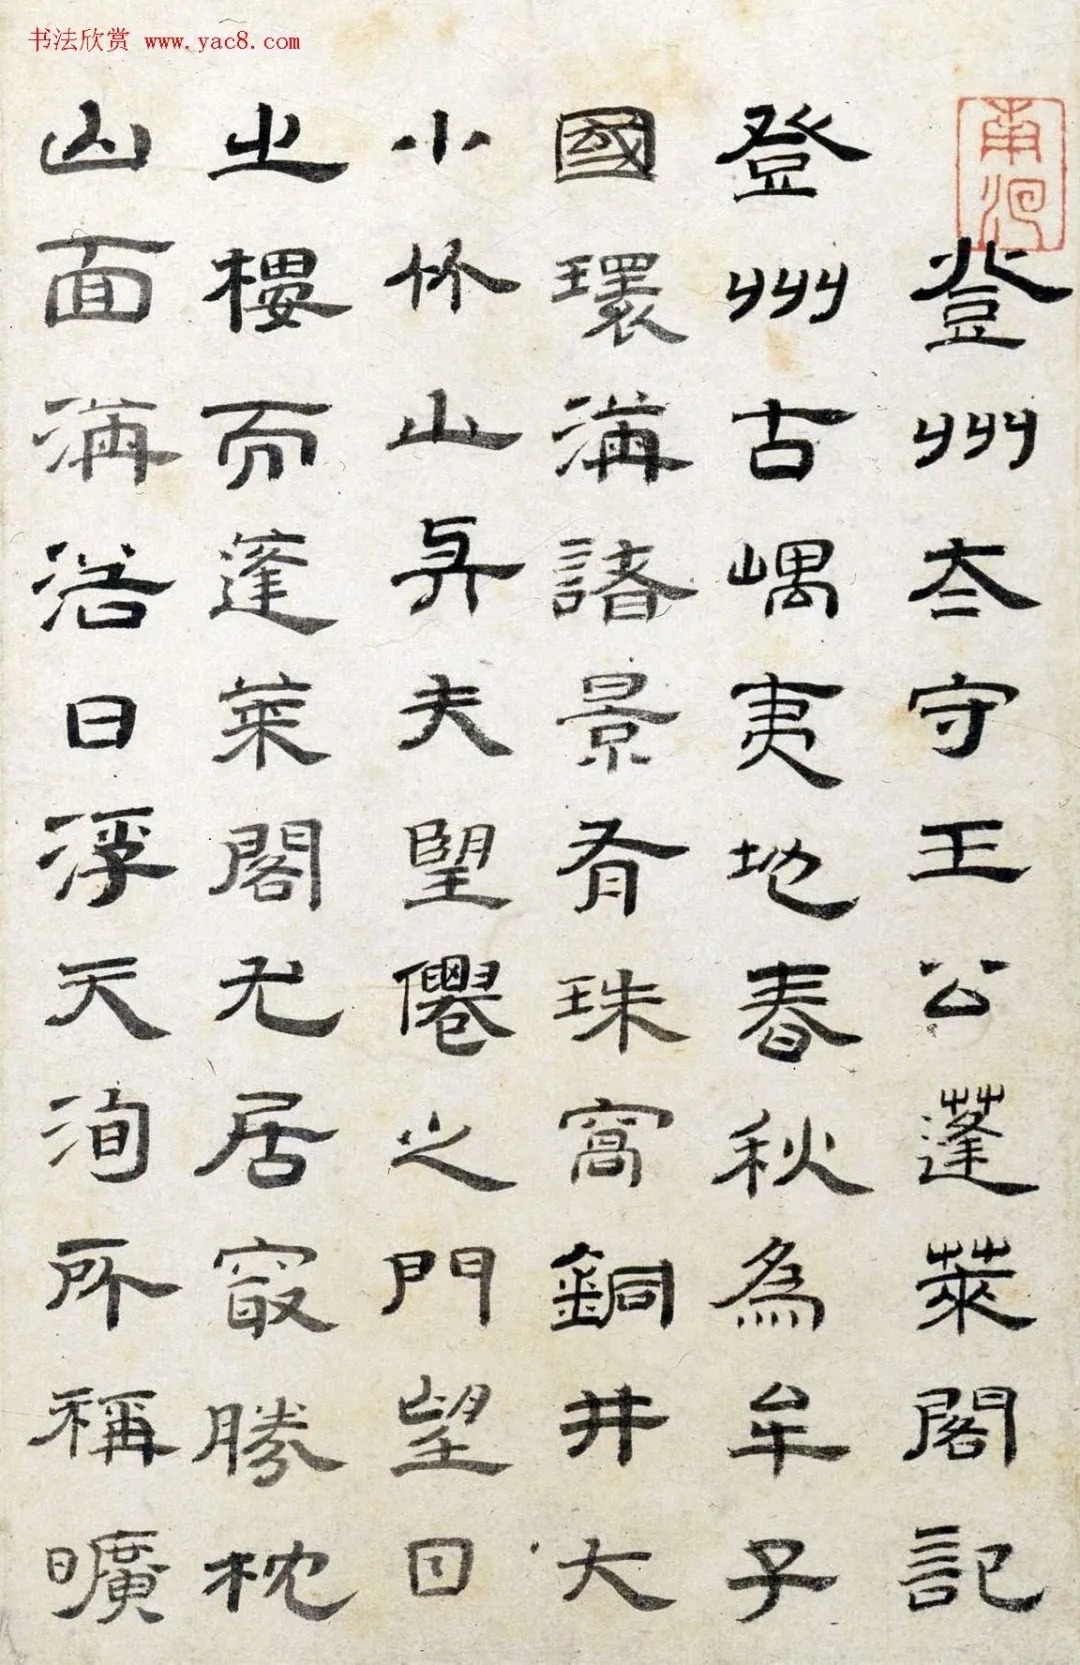 书法欣赏 www.yac8.com
登州夳守王公蓬萊閣記
登州古嵎夷地春秋為牟子
國環海諸景有珠窩銅井大
小竹山與夫朢僊之門望日
之樓而蓬萊閣尤居冣勝枕
山面海浴日浮天洵所稱曠